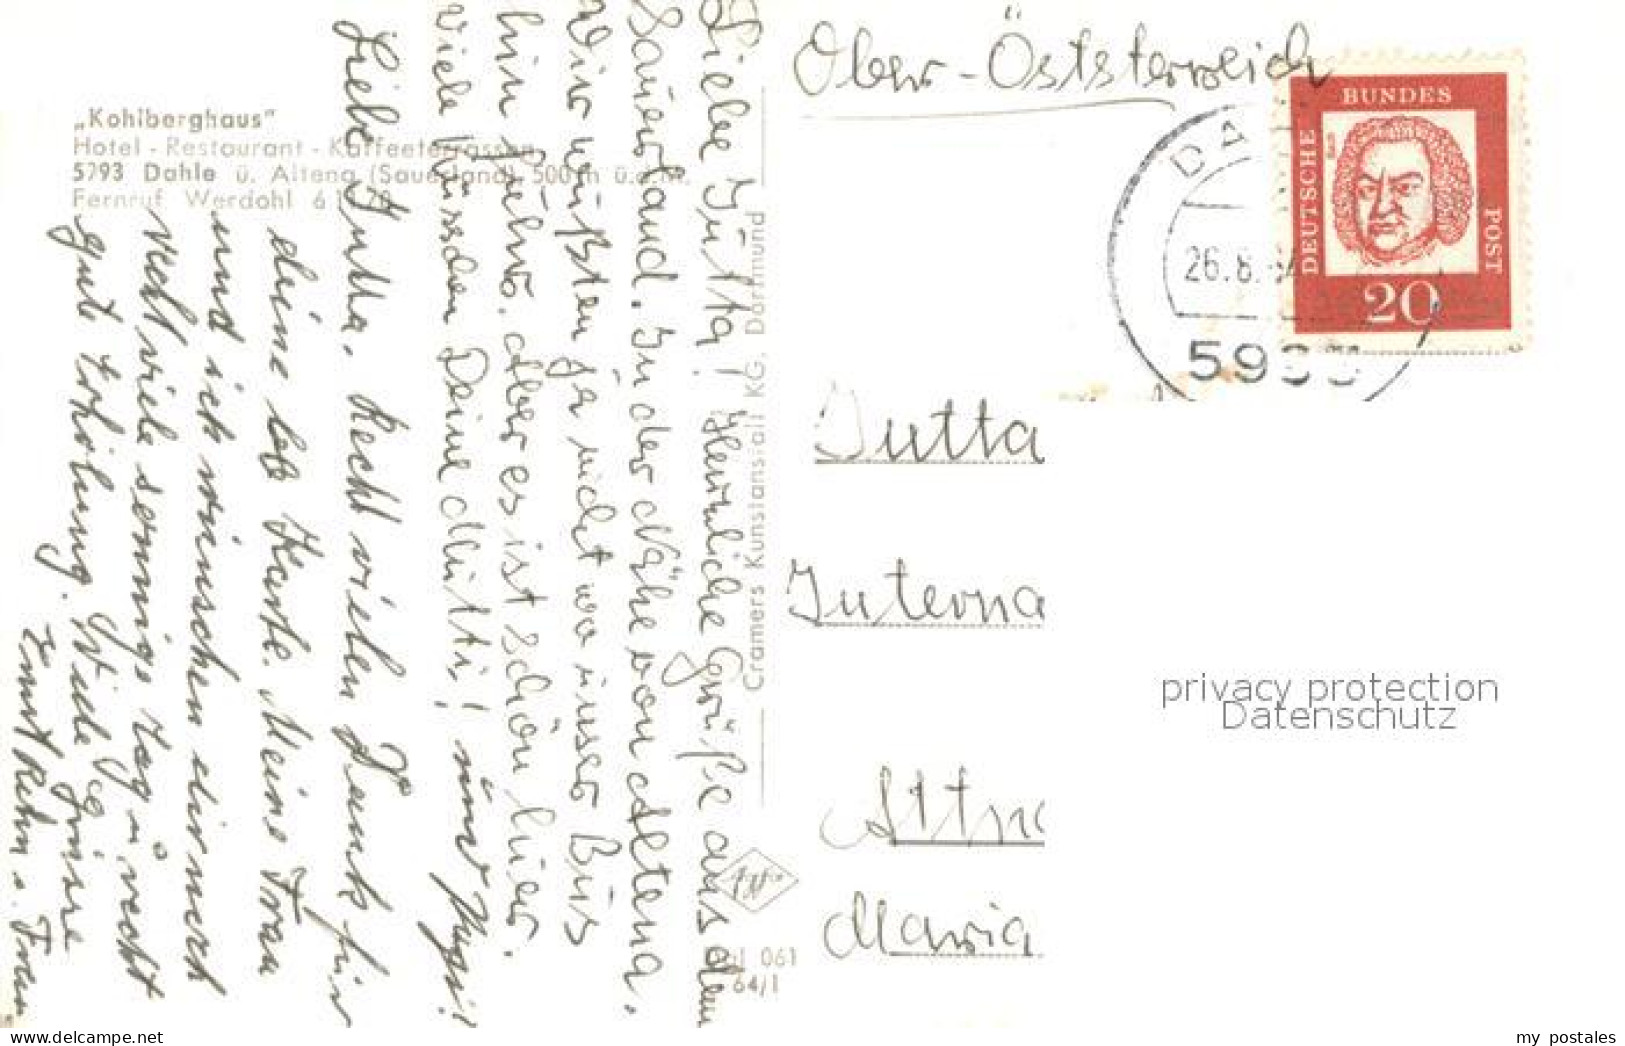 „Kohlberghaus"
Hotel - Restaurant - Kaffeeterrassen
5793 Dahle ü. Altena (Sauerland), 500 m ü.d.M.
Fernruf Werdohl 6
Liebe Jutta! Herzliche Grüße aus dem
Sauerland. In der Nähe von Altena.
Wir wußten ja nicht wo unser Bus
hin fuhr. Aber es ist schön hier.
Viele Küsschen Deine Mutti! und Pappi!
Liebe Jutta. Recht vielen Dank für
deine lb Karte. Meine Frau
und ich wünschen dir noch
recht viele sonnige Tage u recht
gute Erholung. Viele Grüsse
Ernst u. Frau
Cramers Kunstanstalt KG. Dortmund
Agfa
061
64/1
Ober-Öststerreich
DEUTSCHE BUNDES POST
20
DA
26.8.
59
Jutta
Interna
Attn
Maria
privacy protection
Datenschutz
oldthing.de
my postales